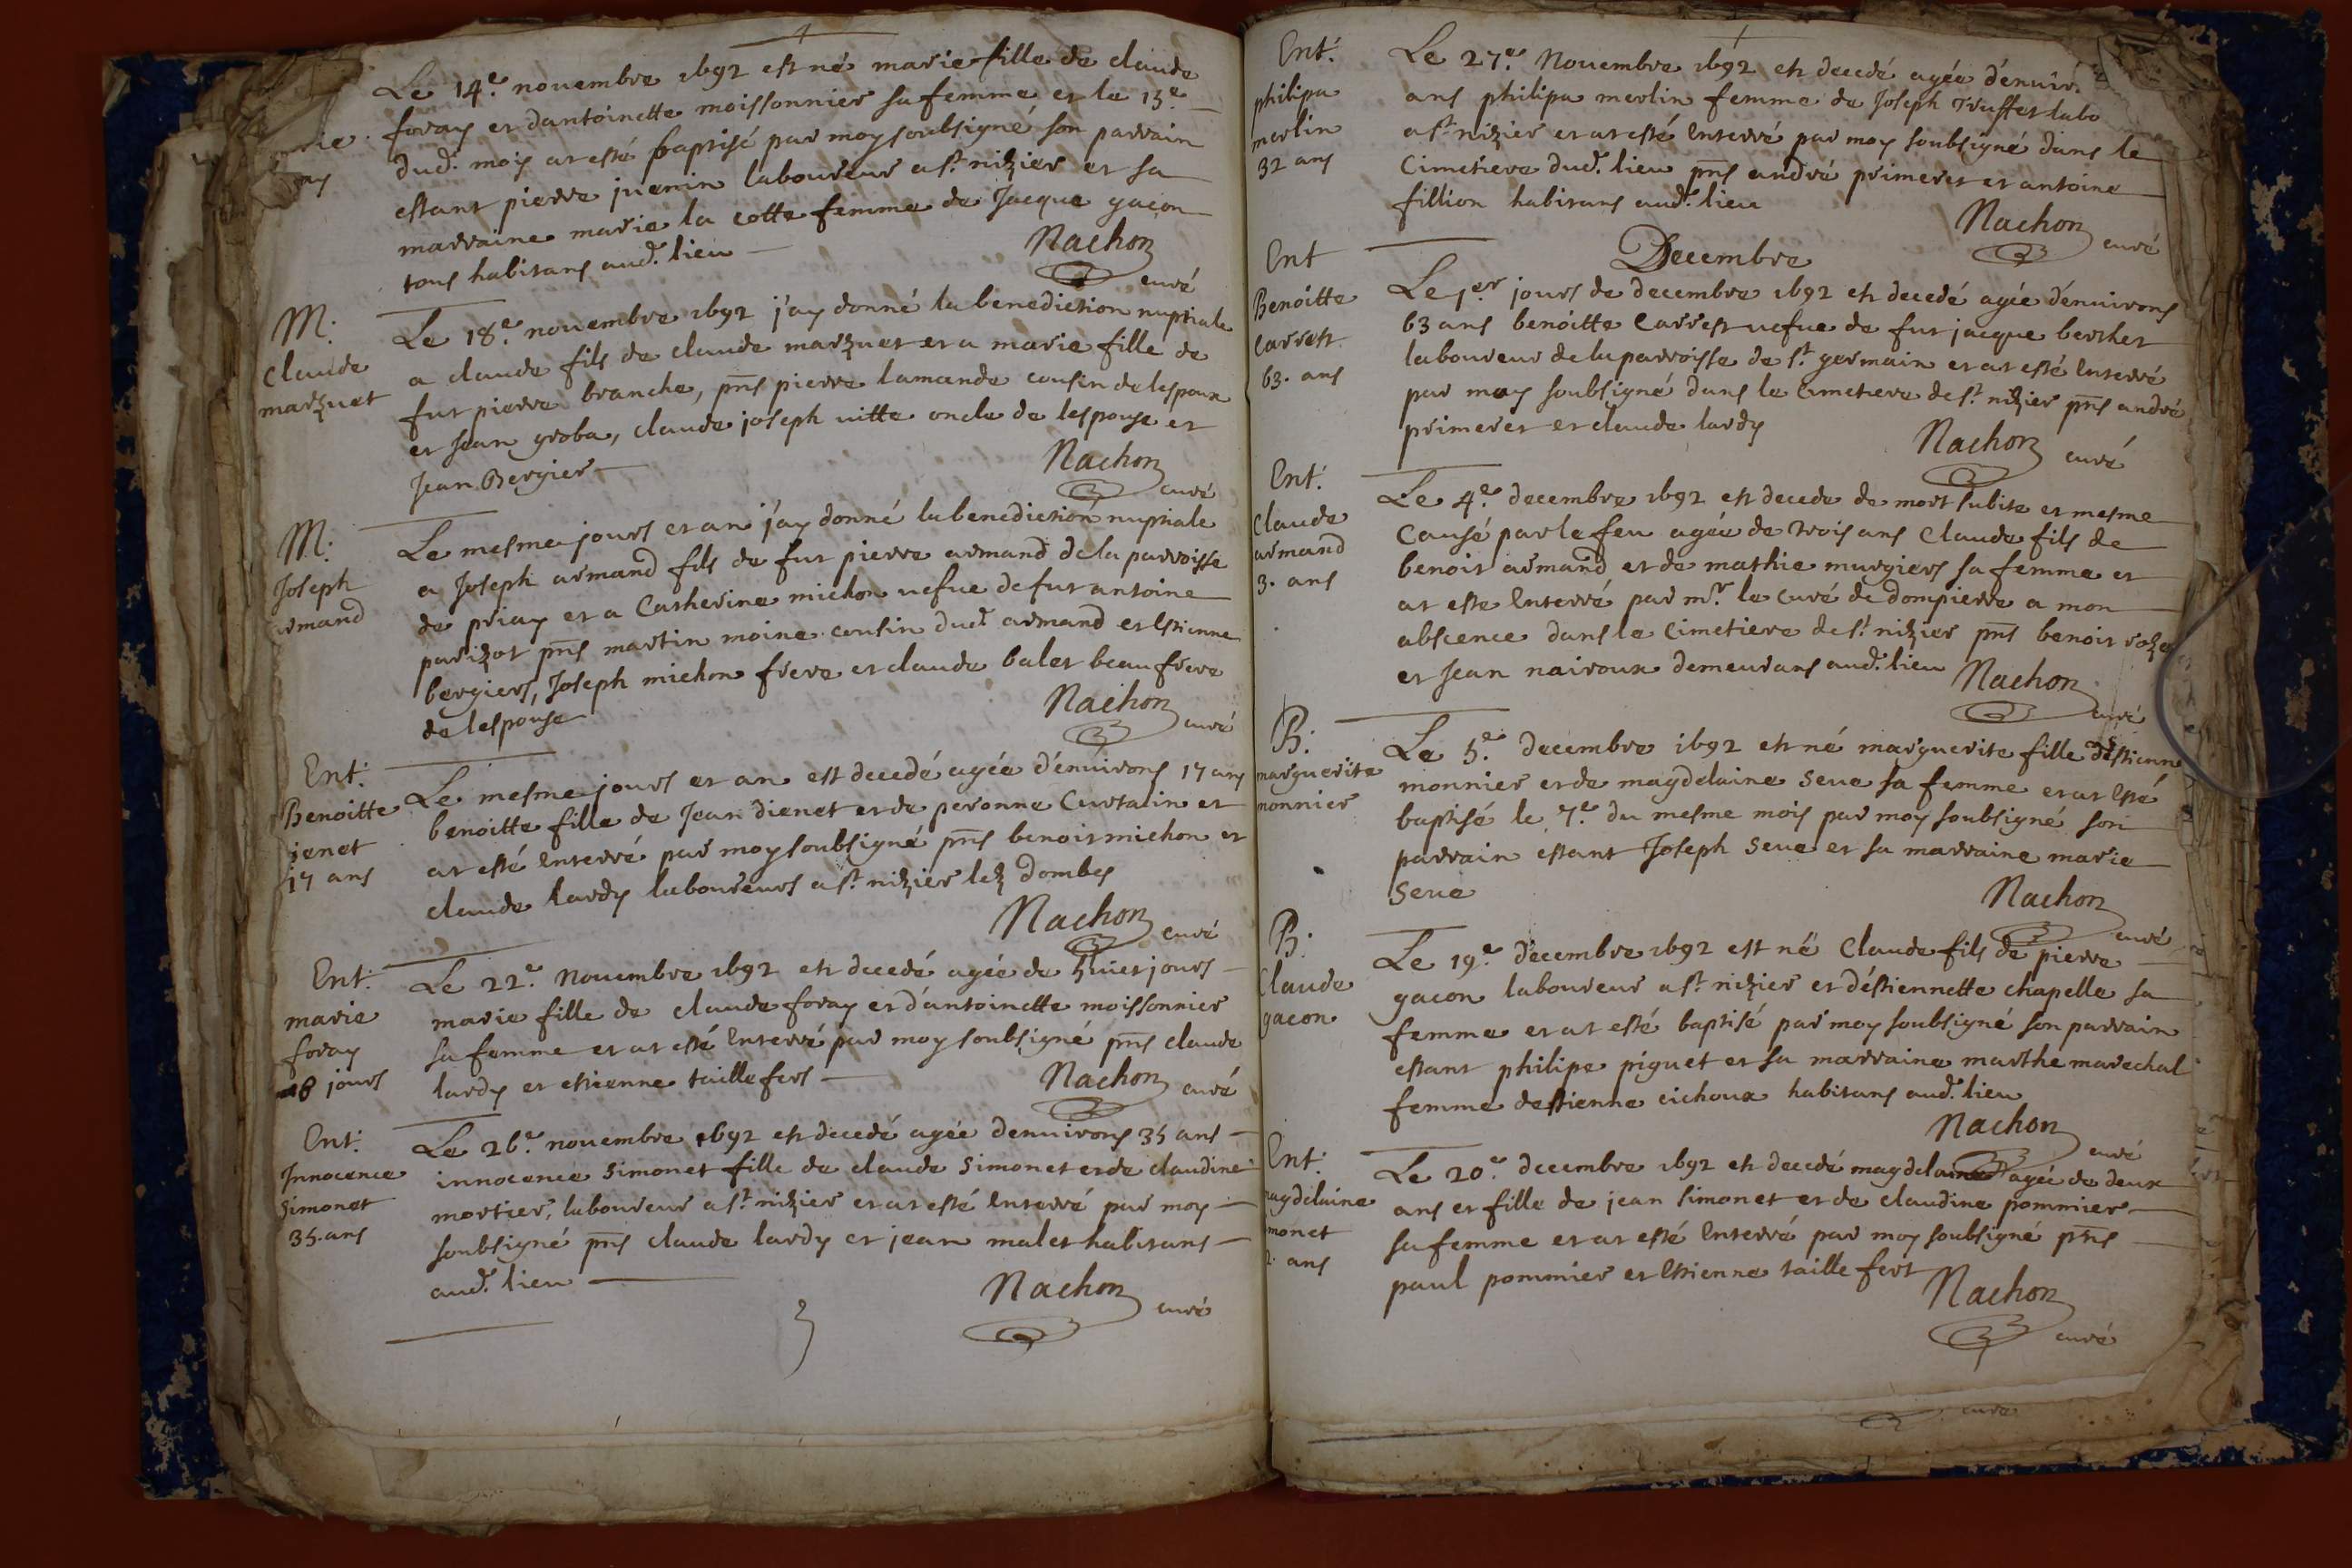 Le 14e novembre 1692 est né marie fille de claude
foray et dantoinette moissonnier sa femme et le 15e
dud. mois at esté baptisé par moy soubsigné son parrain
estant pierre juenin laboureur a st nizier et sa
marraine marie la cotte femme de Jacque gacon
tous habitans aud. lieu
Nachon
curé
M:
Claude
marzuet
Le 18e novembre 1692 j'ay donné la benediction nuptiale
a claude fils de claude marzuet et a marie fille de
fut pierre branche, pns pierre lamande cousin de lespoux
et Jean groba, claude joseph vitte oncle de lespouse et
Jean Bergier
Nachon
curé
M:
Joseph
armand
Le mesme jours et an j'ay donné la benediction nuptiale
a Joseph armand fils de fut pierre armand de la parroisse
de priay et a Catherine michon vefue de fut antoine
parizot pns martin moine cousin dud. armand et Estienne
bergiers, Joseph michon frere et claude balet beau frere
de lespouse
Nachon
curé
Ent:
Benoitte
jenet
17 ans
Le mesme jours et an est decedé agée d'enuirons 17 ans
benoitte fille de Jean dienet et de peronne Curtain et
at esté Enterré par moy soubsigné pns benoit michon et
claude lardy laboureurs a st nizier lez Dombes
Nachon
curé
Ent:
marie
foray
8 jours
Le 22e Novembre 1692 est decedé agée de huict jours
marie fille de claude foray et d'antoinette moissonnier
sa femme et at esté Enterré par moy soubsigné pns claude
lardy et estienne taillefers
Nachon
curé
Ent:
Innocence
Simonet
35. ans
Le 26e novembre 1692 est decedé agée denuirons 35 ans
innocence Simonet fille de claude Simonet et de claudine
mortier, laboureur a st nizier et at esté Enterré par moy
soubsigné pns claude lardy et jean malet habitans
aud. lieu
Nachon
curé
Ent:
philipa
merlin
32 ans
Le 27e Novembre 1692 est decedé agée d'enuir
ans philipa merlin femme de Joseph Truffet labo
a st nizier et at esté Enterré par moy soubsigné dans le
Cimetiere dud. lieu pns andré primeret et antoine
fillion habitans aud. lieu
Nachon
curé
Decembre
Ent
Benoitte
Carrest
63. ans
Le 1er jours de decembre 1692 est decedé agée d'enuirons
63 ans benoitte Carrest vefue de fut jacque berthet
laboureur de la parroisse de st germain et at esté Enterré
par moy soubsigné dans le Cimetiere de st nizier pns andré
primeret et claude lardy
Nachon
curé
Ent:
Claude
armand
3. ans
Le 4e decembre 1692 est decede de mort subite et mesme
Causé par le feu agée de trois ans Claude fils de
benoit armand et de mathie murgiers sa femme et
at este Enterré par mr le curé de dompierre a mon
abscence dans le Cimetiere de st nizier pns benoit
et Jean nairoux demeurans aud. lieu
Nachon
curé
B:
marguerite
monnier
Le 5e decembre 1692 est né marguerite fille d'Estienne
monnier et de magdelaine Seue sa femme et at Esté
baptisé le 7e du mesme mois par moy soubsigné son
parrain estant Joseph Seue et sa marraine marie
Seue
Nachon
curé
B:
Claude
gacon
Le 19e decembre 1692 est né Claude fils de pierre
gacon laboureur a st nizier et d'éstiennette chapelle sa
femme et at esté baptisé par moy soubsigné son parrain
estant philipe piguet et sa marraine marthe marechal
femme destienne cichoux habitans aud. lieu
Nachon
curé
Ent:
agdelaine
monet
2. ans
Le 20e decembre 1692 est decedé magdelaine agée de deux
ans et fille de jean Simonet et de claudine pommier
sa femme et at esté Enterré par moy soubsigné pns
paul pommier et Estienne taille fert
Nachon
curé